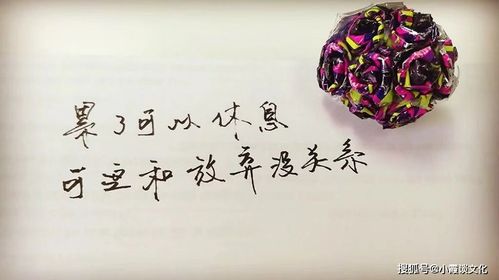 累了可以休息
可要和放弃没关系
搜狐号@小霞谈文化